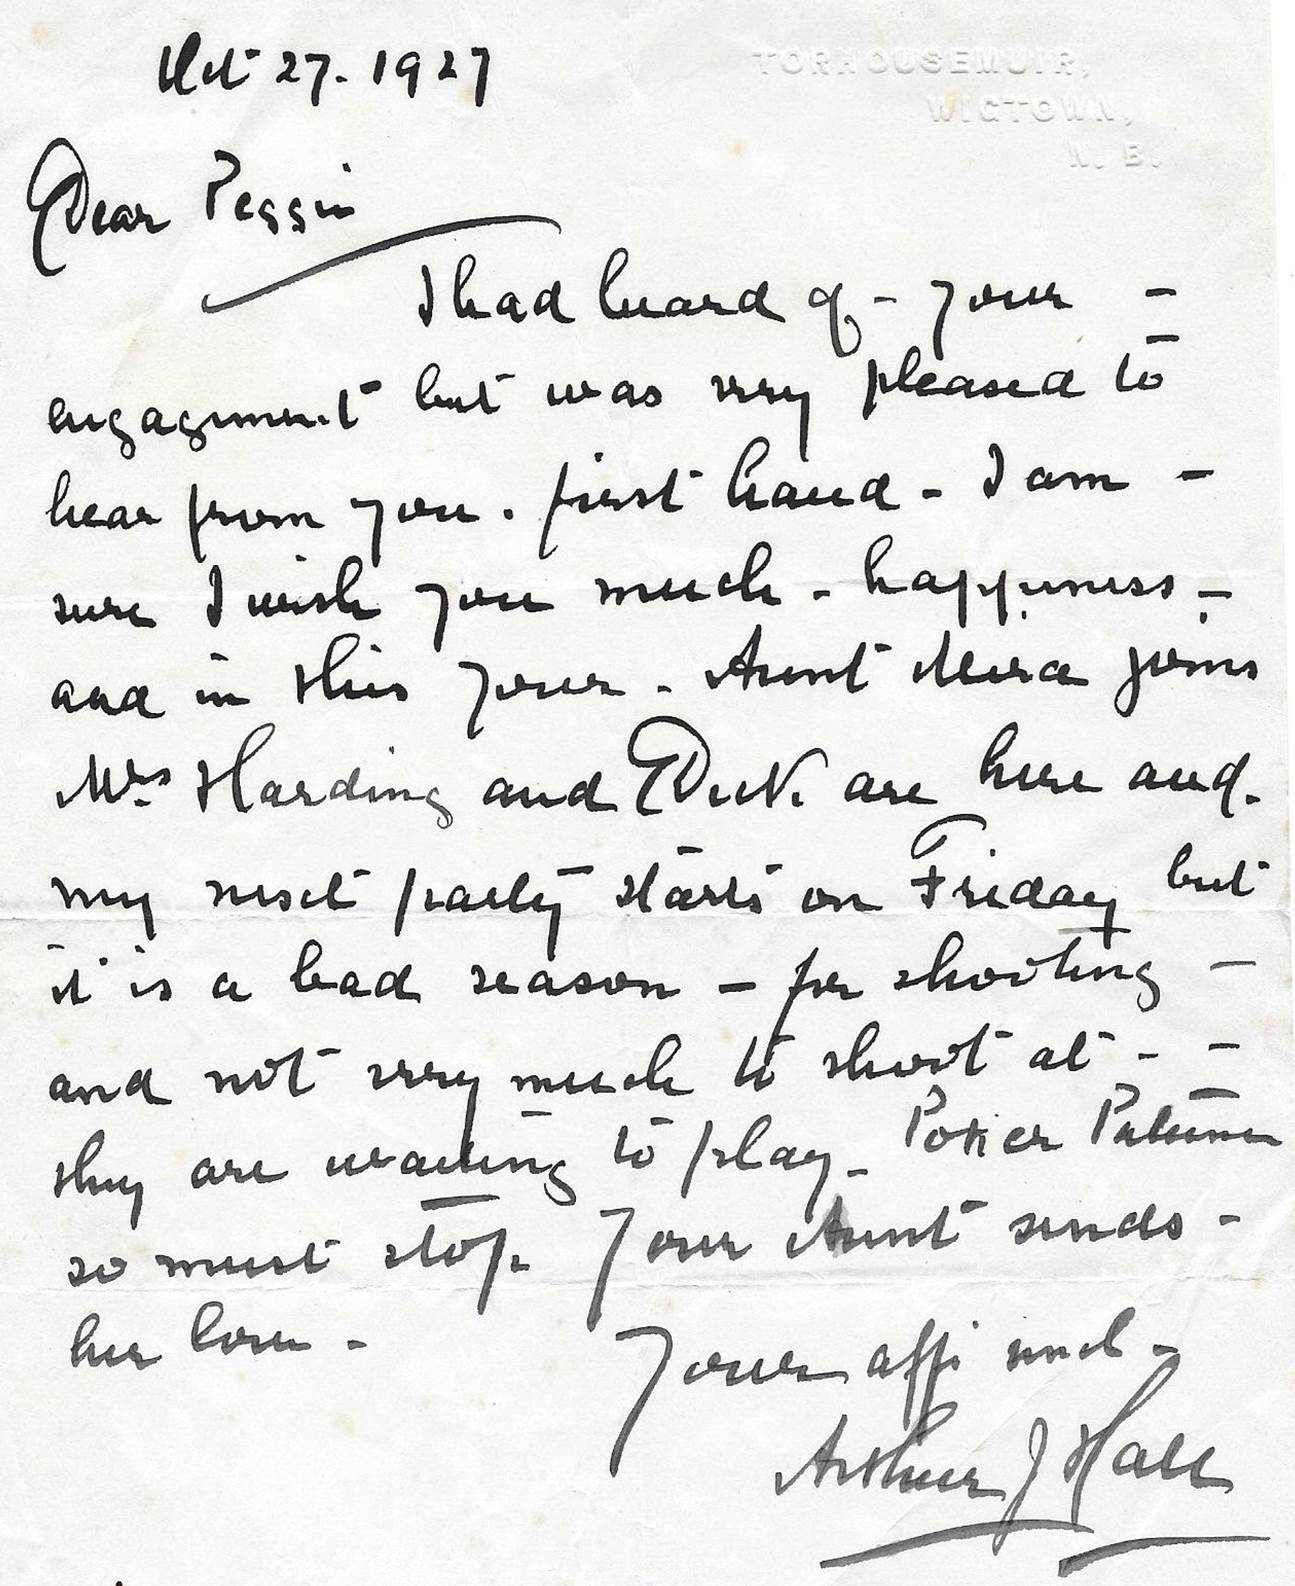 Oct 27. 1927
TORHOUSEMUIR,
WIGTOWN,
N. B.
Dear Peggie
I had heard of - your -
engagement but was very pleased to
hear from you. first hand - I am -
sure I wish you much - happiness -
and in this your - Aunt Mera joins
Mrs Harding and Dick are here and.
my next party starts on Friday but
it is a bad season - for shooting -
and not very much to shoot at - -
they are waiting to play - Poker Patience
so must stop. Your Aunt sends -
her love -
Your affi uncl -
Arthur J Hall